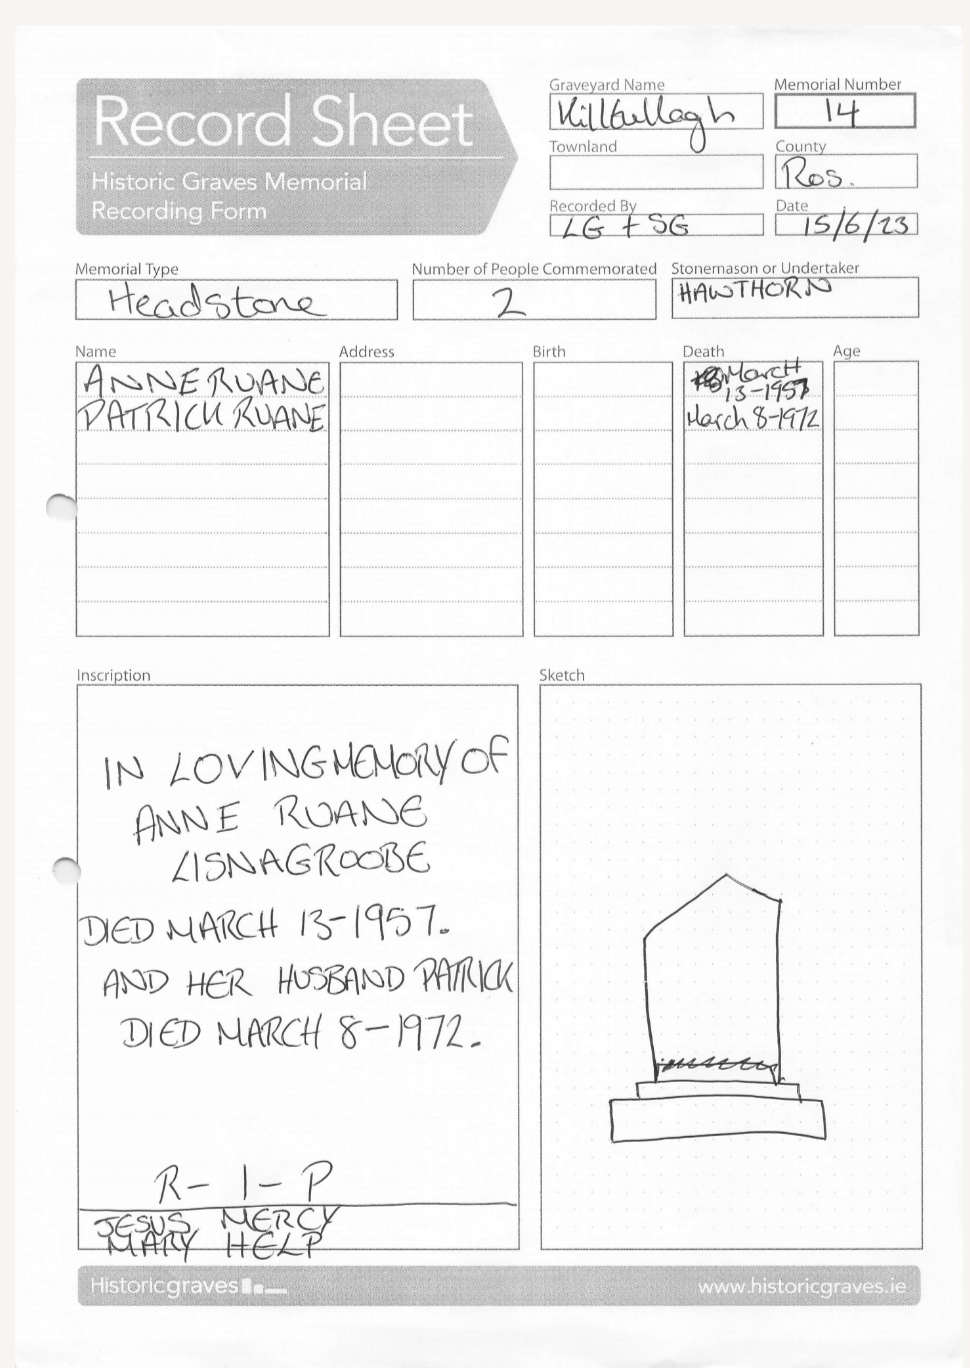 Record Sheet
Historic Graves Memorial
Recording Form
Graveyard Name
Killtullagh
Memorial Number
14
Townland
County
Ros.
Recorded By
LG + SG
Date
15/6/23
Memorial Type
Headstone
Number of People Commemorated
2
Stonemason or Undertaker
HAWTHORN
Name
Address
Birth
Death
Age
ANNE RUANE
March
13-1957
PATRICK RUANE
March 8-1972
Inscription
IN LOVING MEMORY OF
ANNE RUANE
LISNAGROOBE
DIED MARCH 13-1957.
AND HER HUSBAND PATRICK
DIED MARCH 8-1972.
R-I-P
JESUS, MERCY
MARY HELP
Sketch
Historicgraves
www.historicgraves.ie